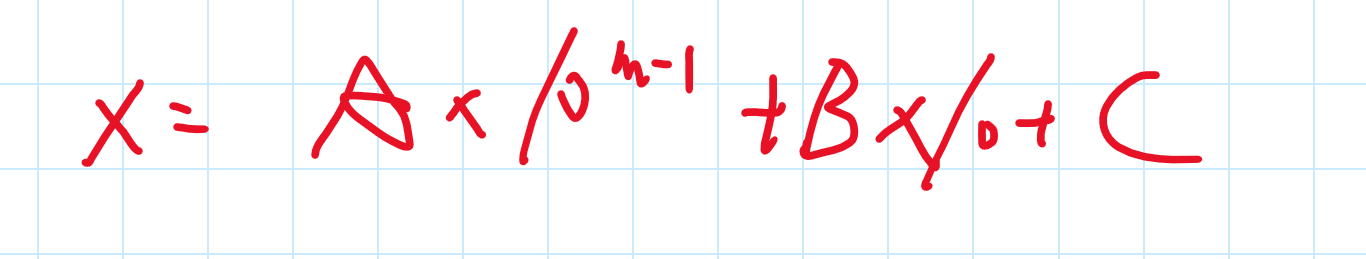 x = A × 10^{n-1} + B × 10 + C